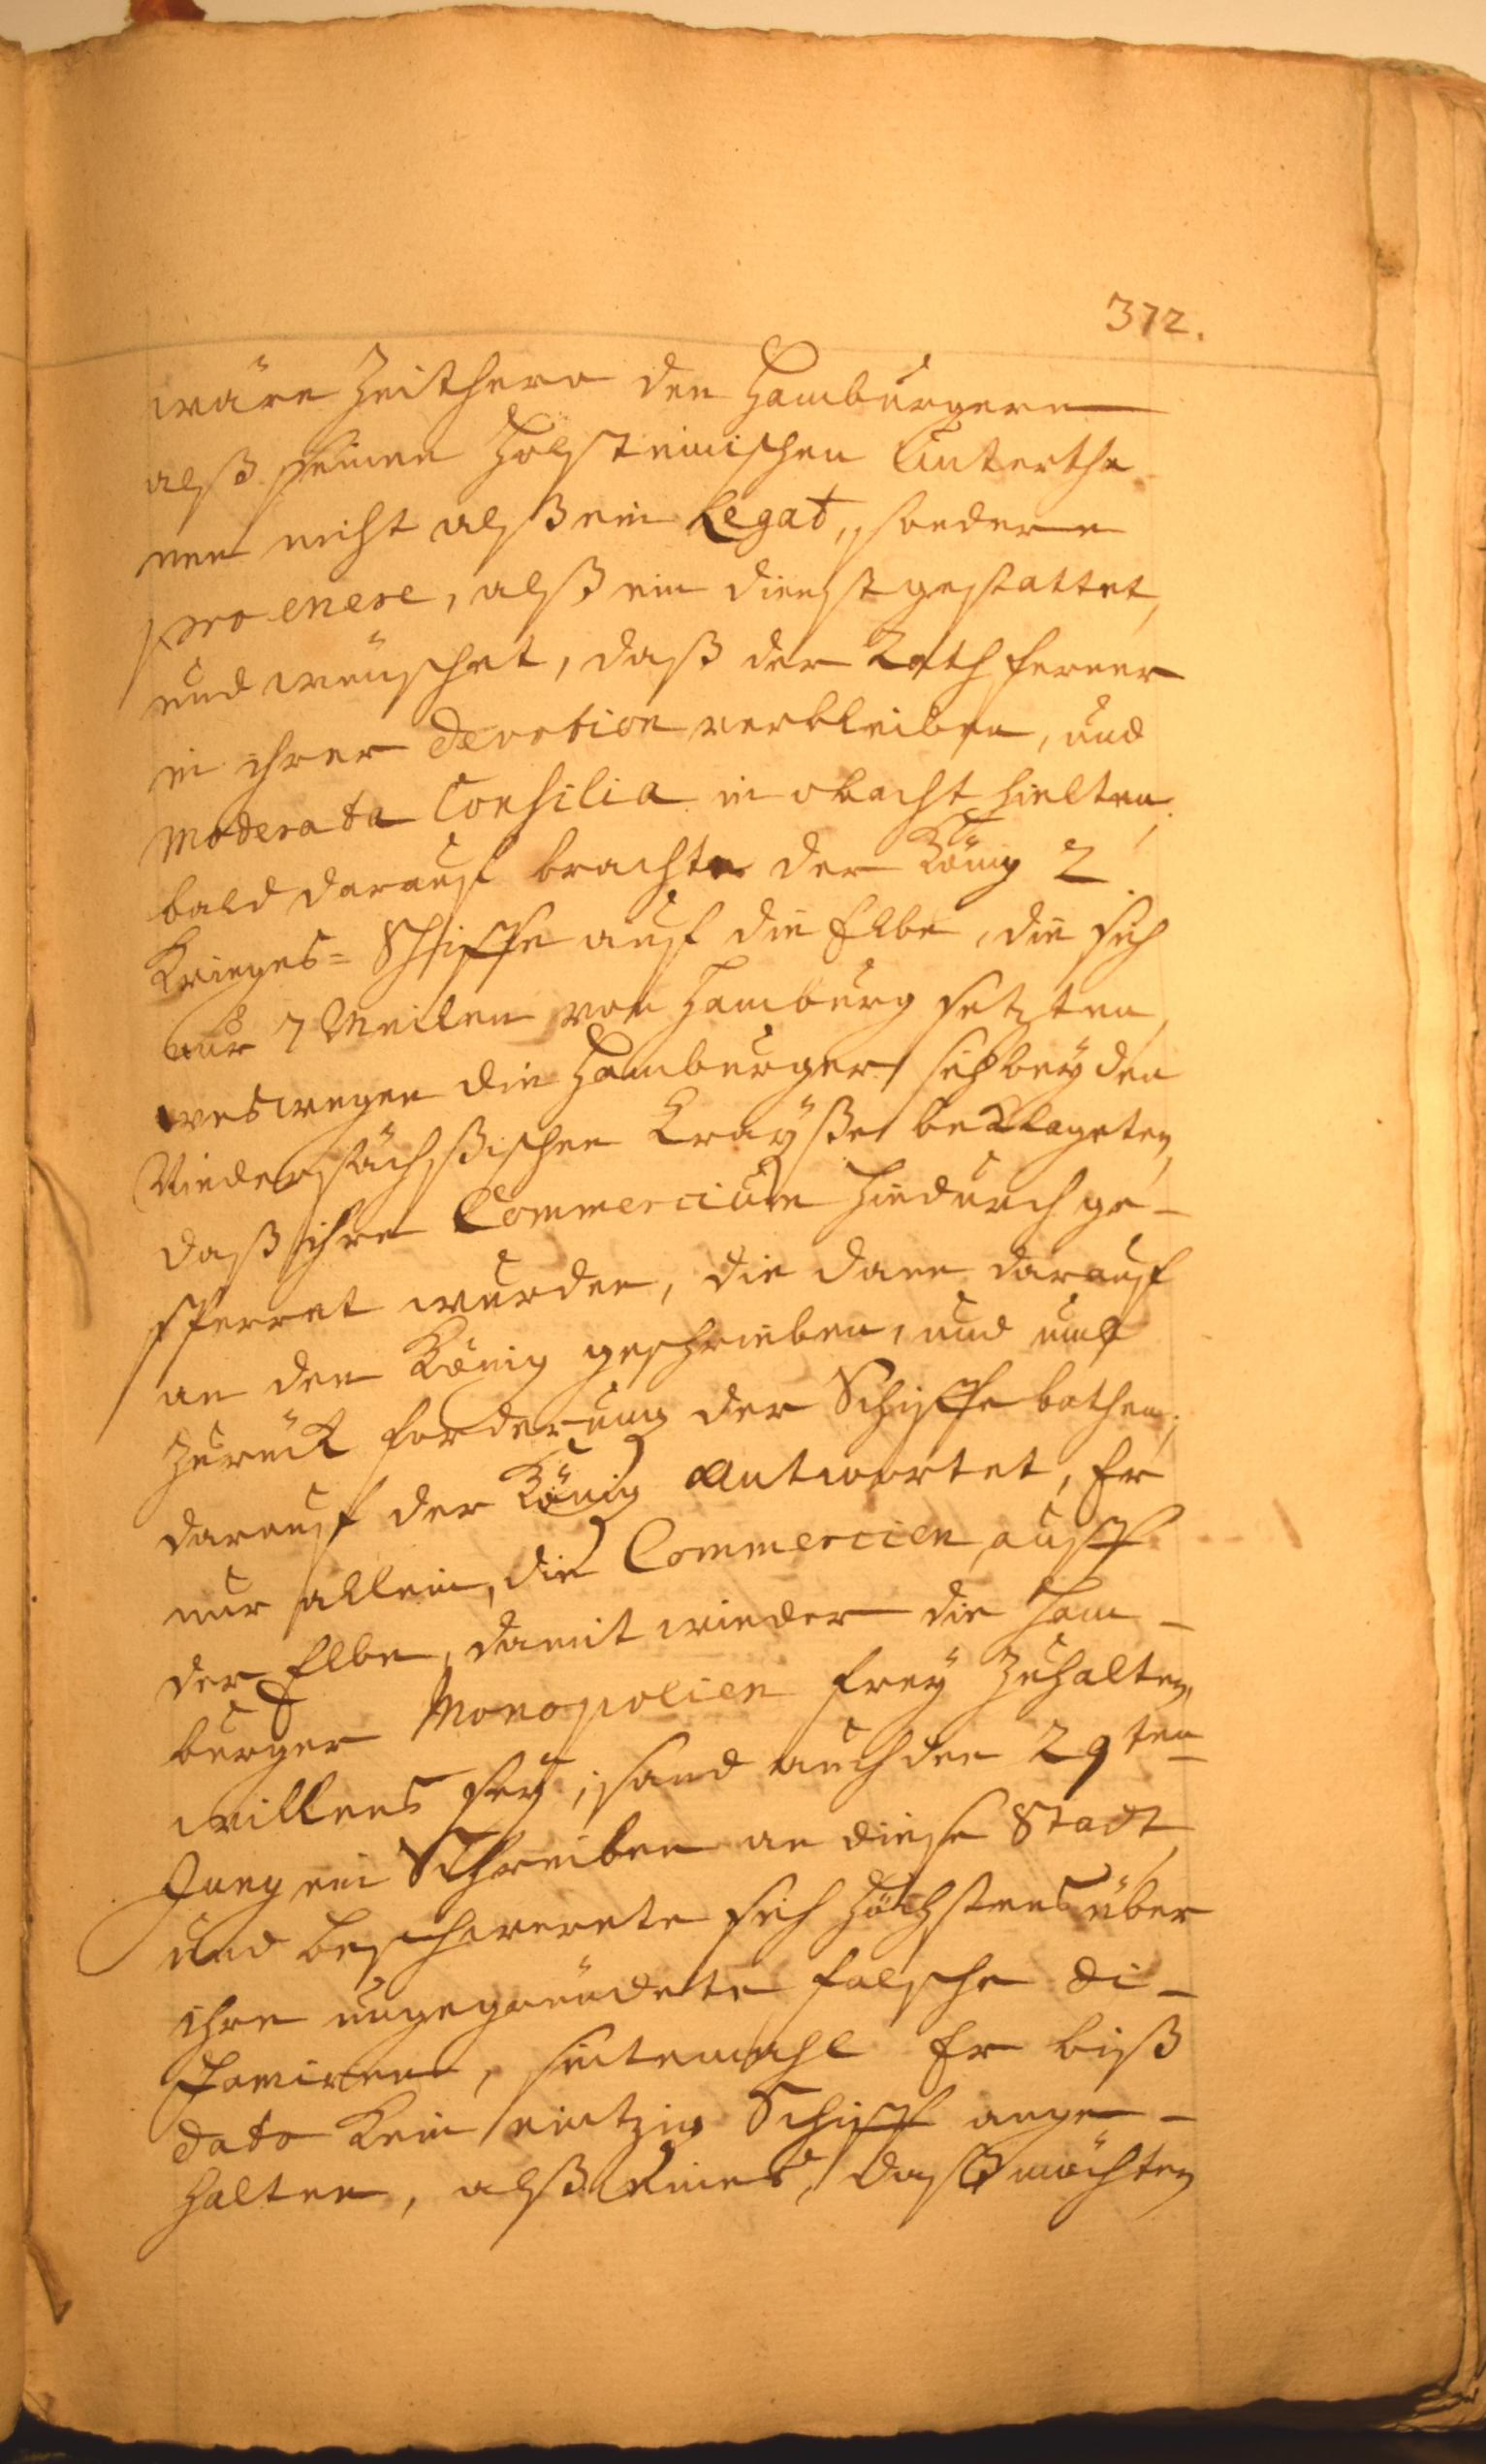 372.
wäre Zeithero den Hamburgern
alß seinen Holsteinischen Untertha
nen nicht alß ein Legat, sondern
pro onere, alß ein dienst gestattet,
und wünschet, daß der Rath ferner
in ihrer Devotion verbleiben, und
Moderata Consilia in obacht hielten.
bald darauf brachte der König 2
Krieges= Schiffe auf die Elbe, die sich
nur 7 Meilen von Hamburg setzten,
weswegen die Hamburger sich bey den
Niedersächßischen Krayße beklageten,
daß ihre Commercium hiedurch ge-
sperret wurden, die dann darauf
an den König geschrieben, und umb
Zurück forderung der Schiffe bathen;
darauf der König Antwortet, Er
nur allein, die Commercien auff
der Elbe, damit wieder die Ham-
burger Monopolien frey zuhalten,
willens sey, sand auch den 29ten
Juny ein Schreiben an diese Stadt,
und beschwerete sich höchstens über
ihre ungegründete falsche di-
famiren, sintemahl Er biß
dato kein eintzig Schiff ange-
halten, alß Eines, daß möchten